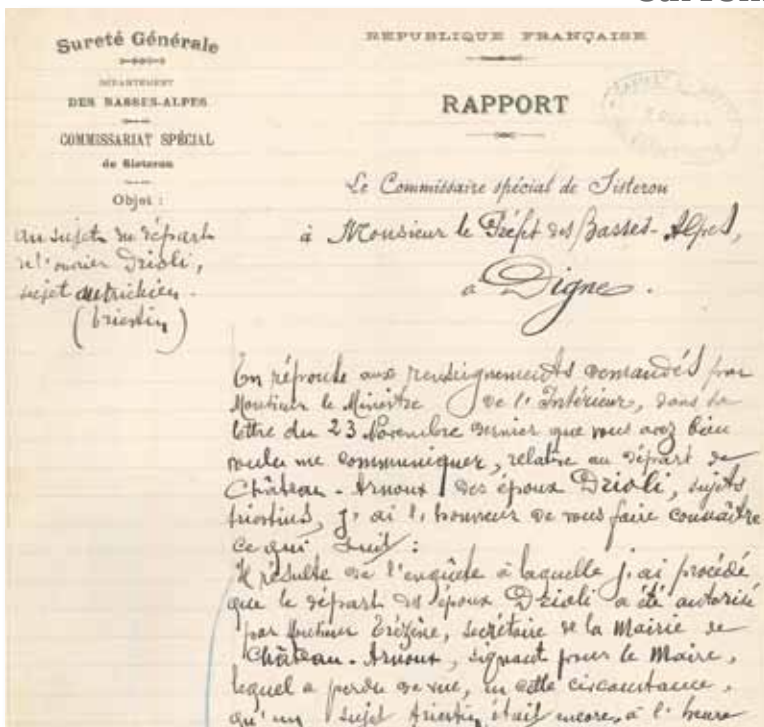 Sureté Générale
DÉPARTEMENT
DES BASSES-ALPES
COMMISSARIAT SPÉCIAL
de Sisteron
Objet :
au sujet du départ
de l'ouvrier Dzioli,
sujet autrichien.
(triestin)
REPUBLIQUE FRANÇAISE
RAPPORT
Le Commissaire spécial de Sisteron
à Monsieur le Préfet des Basses-Alpes,
a Digne.
En réponse aux renseignements demandés par
Monsieur le Ministre de l'Intérieur, dans sa
lettre du 23 Novembre dernier que vous avez bien
voulu me communiquer, relative au départ de
Château-Arnoux des époux Dzioli, sujets
triestins, j'ai l'honneur de vous faire connaître
ce qui suit :
Il résulte de l'enquête à laquelle j'ai procédé
que le départ des époux Dzioli a été autorisé
par Monsieur Trézène, secrétaire de la Mairie de
Château-Arnoux, signant pour le Maire,
lequel a perdu de vue, en cette circonstance,
qu'un sujet triestin était encore, à l'heure